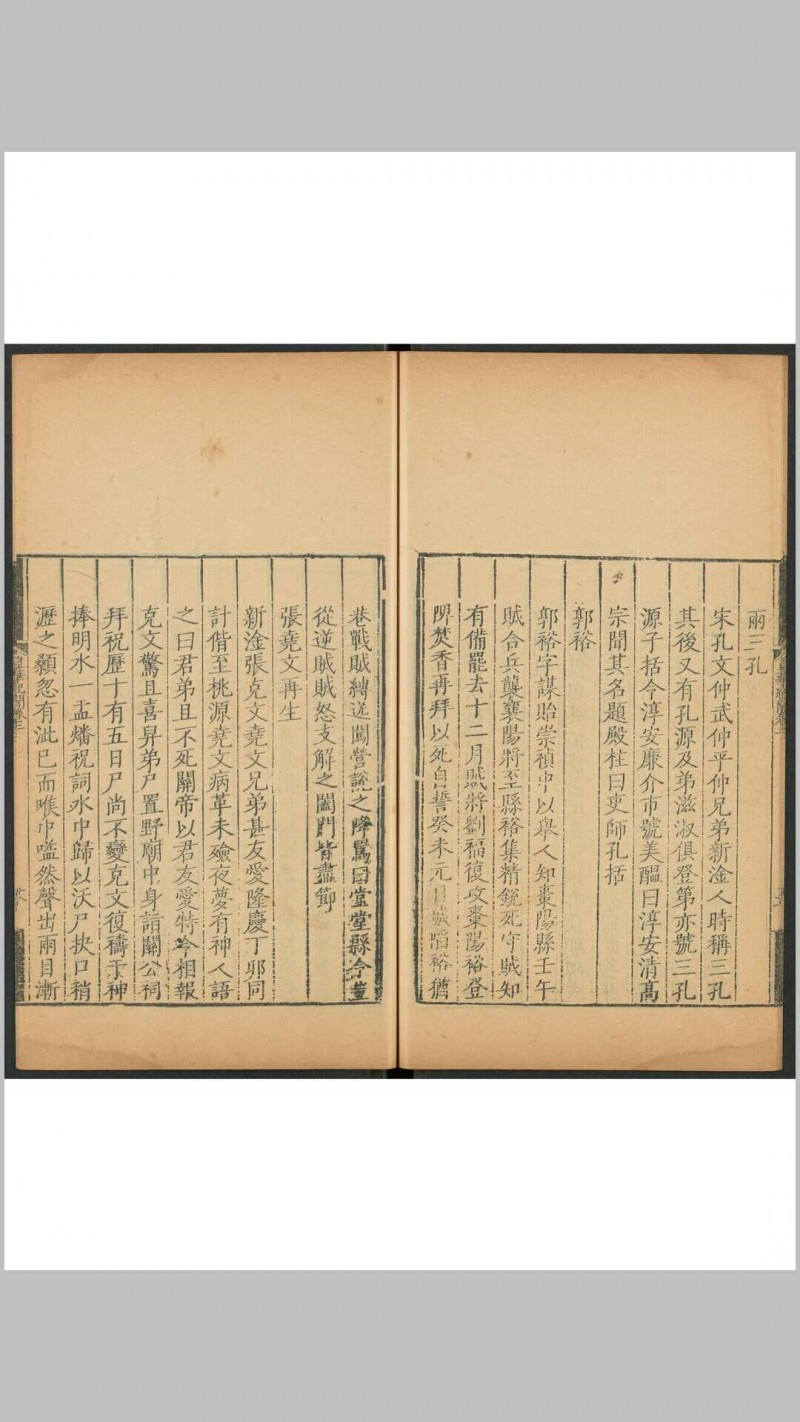 兩三孔
宋孔文仲武仲平仲兄弟新淦人時稱三孔
其後又有孔源及弟滋淑俱登第亦號三孔
源子括令淳安廉介市號美醞曰淳安清高
宗聞其名題殿柱曰吏師孔括
郭裕
郭裕字謀貽崇禎中以舉人知棗陽縣壬午
賊合兵襲襄陽將至縣裕集精銳死守賊知
有備罷去十二月賊將劉福復攻棗陽裕登
陴焚香再拜以死自誓癸未元日城陷裕猶
巷戰賊縛送闖營說之降罵曰堂堂縣令豈
從逆賊賊怒支解之闔門皆盡節
張堯文再生
新淦張克文堯文兄弟甚友愛隆慶丁卯同
計偕至桃源堯文病革未殮夜夢有神人語
之曰君弟且不死關帝以君友愛特令相報
克文驚且喜舁弟尸置野廟中身詣關公祠
拜祝歷十有五日尸尚不變克文復禱于神
捧明水一盂燔祝詞水中歸以沃尸抉口稍
瀝之顙忽有泚已而喉中嗌然聲出兩目漸